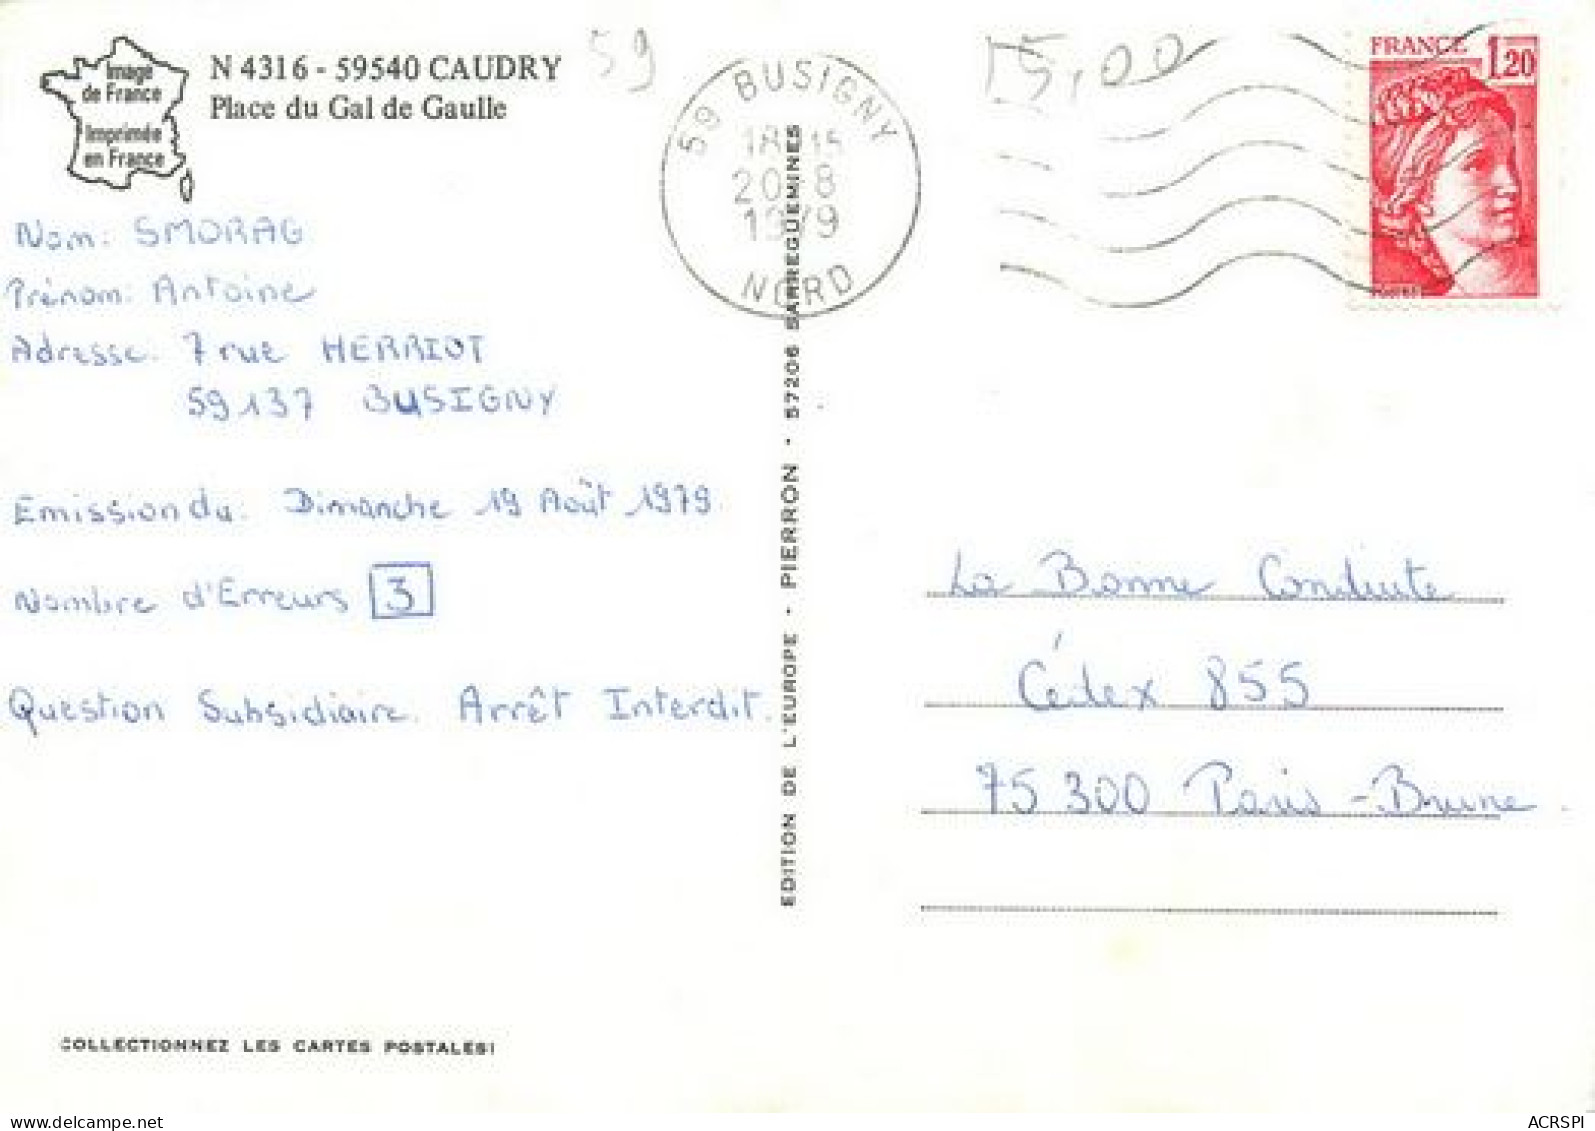 Image
de France
Imprimée
en France
N 4316 - 59540 CAUDRY
Place du Gal de Gaulle
59
15,00
59 BUSIGNY
18 15
20-8
1979
NORD
FRANCE
1,20
Nom: SMORAG
Prénom: Antoine
Adresse: 7 rue HERRIOT
59137 BUSIGNY
Emission du: Dimanche 19 Août 1979.
Nombre d'Erreurs 3
Question Subsidiaire. Arrêt Interdit.
EDITION DE L'EUROPE • PIERRON • 57206 SARREGUEMINES
La Bonne Conduite
Cédex 855
75 300 Paris - Brune
COLLECTIONNEZ LES CARTES POSTALES!
delcampe.net
ACRSPI